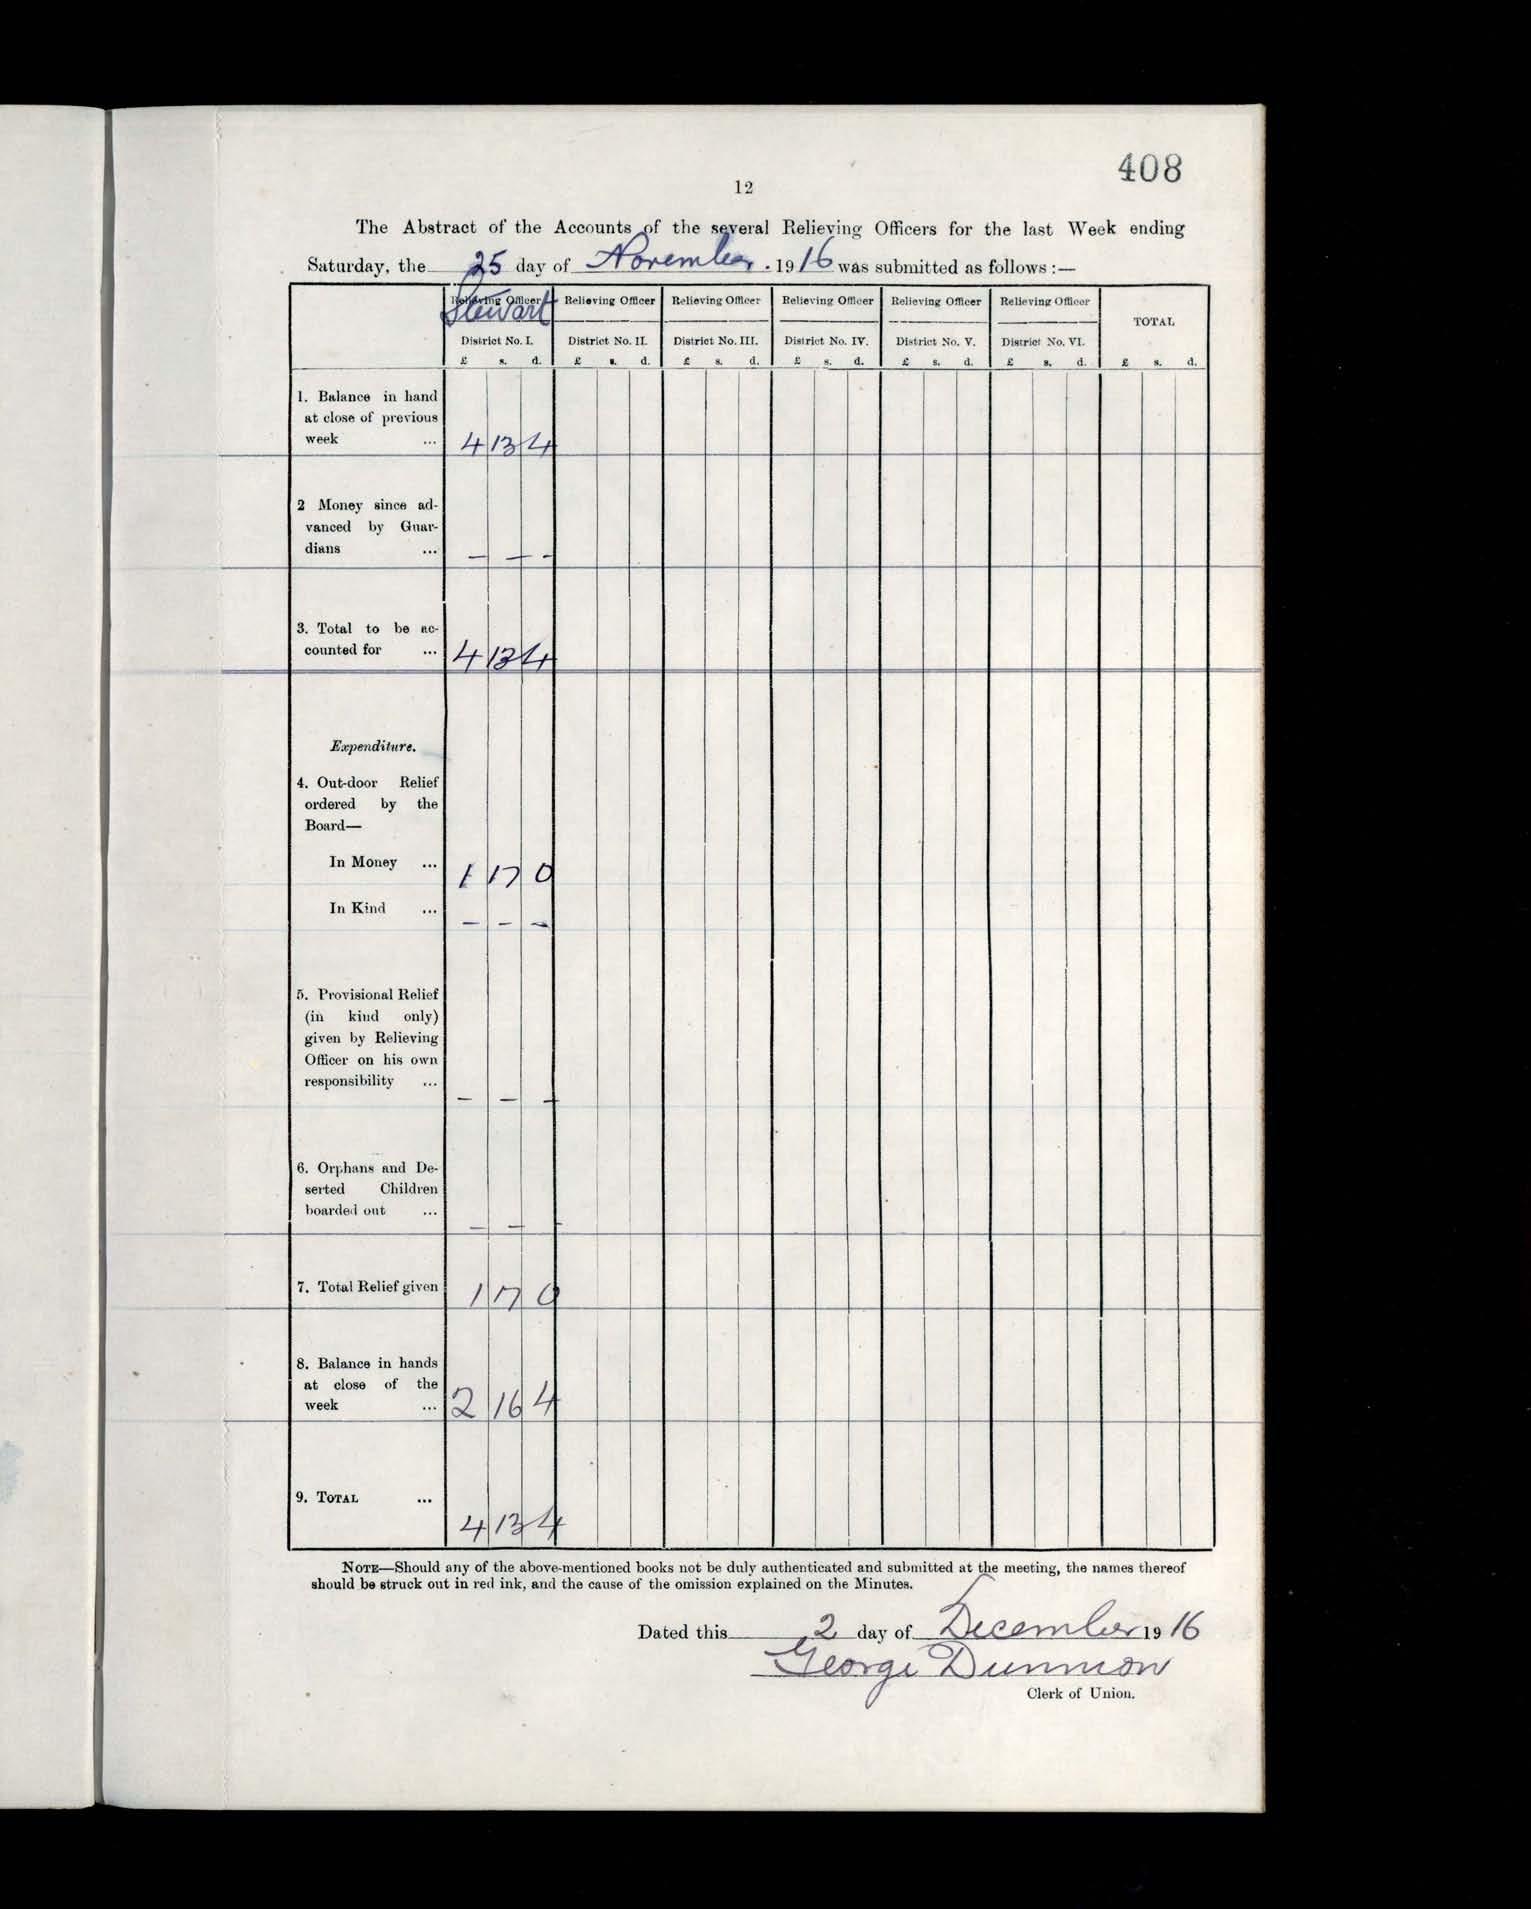 408
12
The Abstract of the Accounts of the several Relieving Officers for the last Week ending
Saturday, the 25 day of November. 1916 was submitted as follows :—
Relieving Officer Relieving Officer Relieving Officer Relieving Officer Relieving Officer Relieving Officer
Stewart
TOTAL
District No. I. District No. II. District No. III. District No. IV. District No. V. District No. VI.
£ s. d. £ s. d. £ s. d. £ s. d. £ s. d. £ s. d. £ s. d.
1. Balance in hand
at close of previous
week ... 4 13 4
2 Money since ad-
vanced by Guar-
dians ... — — -
3. Total to be ac-
counted for ... 4 13 4
Expenditure.
4. Out-door Relief
ordered by the
Board—
In Money ... 1 17 0
In Kind ... — — —
5. Provisional Relief
(in kind only)
given by Relieving
Officer on his own
responsibility ... — — —
6. Orphans and De-
serted Children
boarded out ... — — -
7. Total Relief given 1 17 0
8. Balance in hands
at close of the
week ... 2 16 4
9. TOTAL ... 4 13 4
NOTE—Should any of the above-mentioned books not be duly authenticated and submitted at the meeting, the names thereof
should be struck out in red ink, and the cause of the omission explained on the Minutes.
Dated this 2 day of December 1916
George
Clerk of Union.